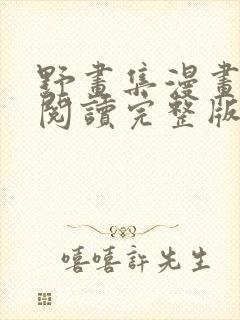 野畫集漫畫
閱讀完整版
嘻嘻許先生